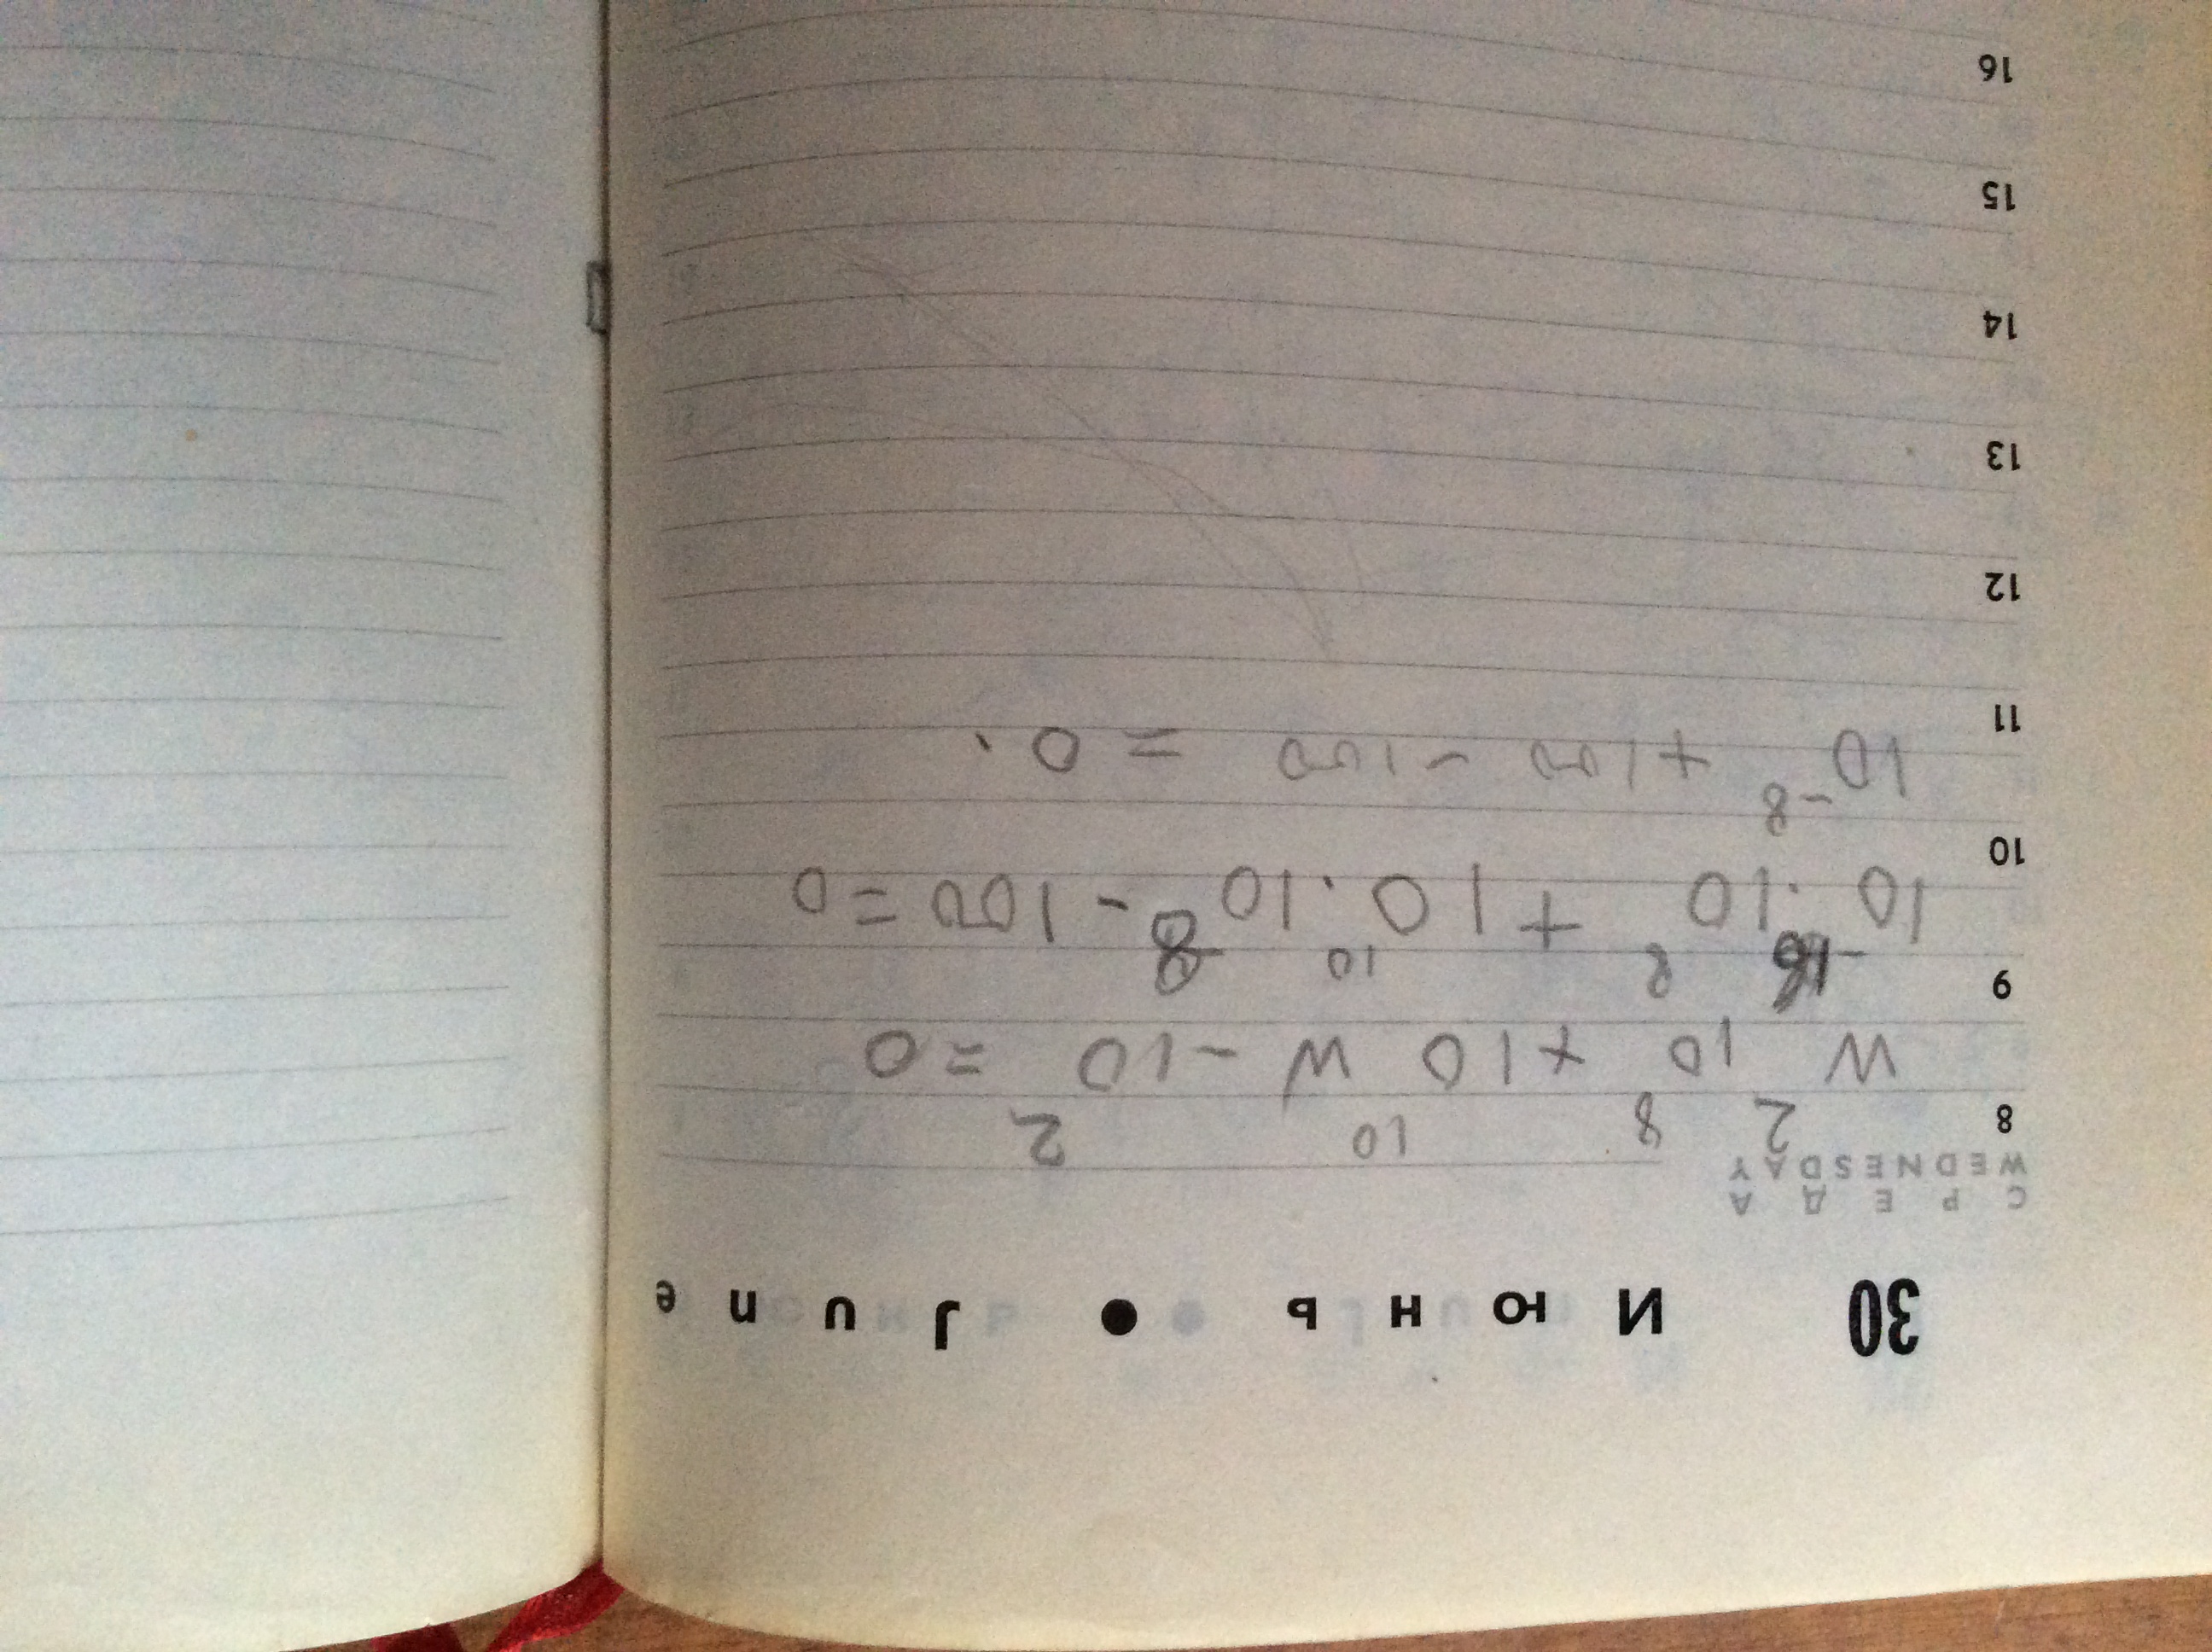 30 Июнь • June
СРЕДА
WEDNESDAY
8
w² 10⁸ + 10¹⁰ w - 10² = 0
9
10⁻¹⁶ · 10⁸ + 10¹⁰ · 10⁻⁸ - 100 = 0
10
10⁻⁸ + 100 - 100 = 0.
11
12
13
14
15
16